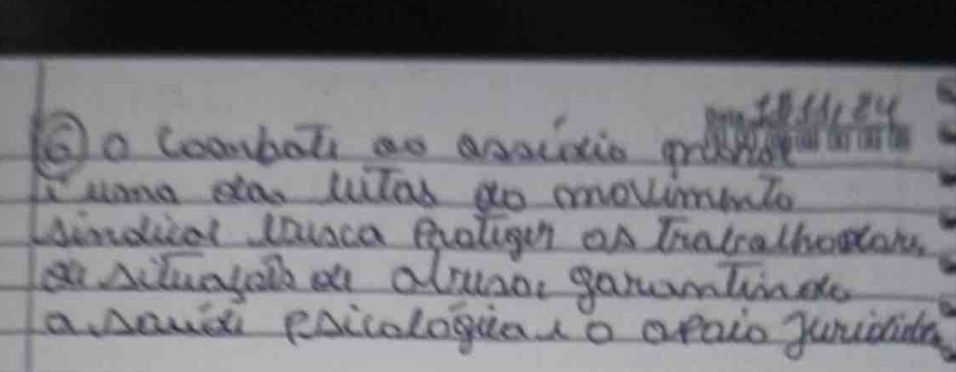 18 11, 24
⑥ O Coombate ao assédio moral
é uma das lutas do movimento
sindical busca proteger os trabalhadores,
de situação de abuso, garantindo
a saúde psicológica e o apoio Juridido